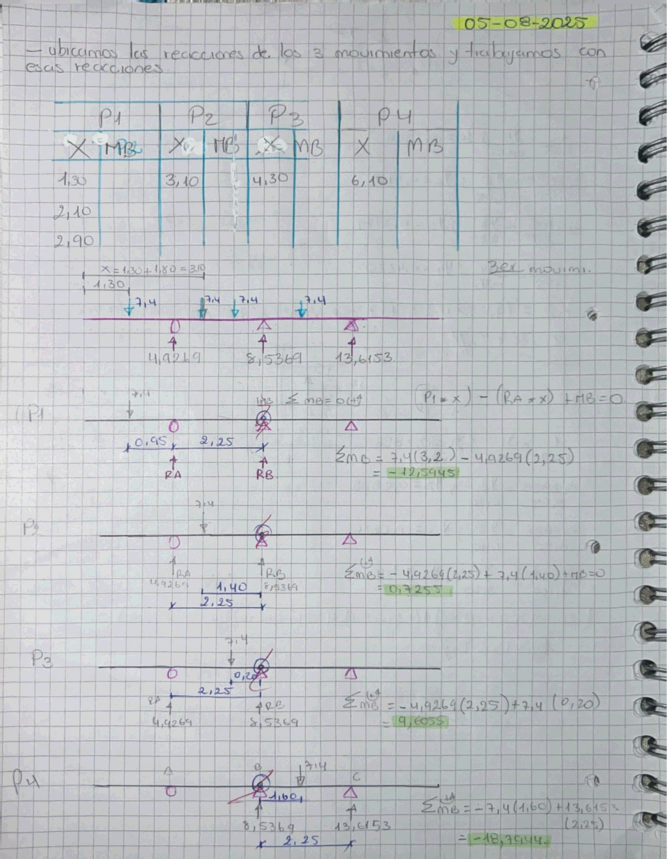 05-08-2025
- ubicamos las reacciones de los 3 movimientos y trabajamos con
esas reacciones
P1 P2 P3 P4
X MB X MB X MB X MB
1,30 3,10 4,30 6,10
2,10
2,90
X = 1,30 + 1,80 = 3,10
3er movimi.
1,30
7,4 7,4 7,4 7,4
4,9269 8,5369 13,6153
P1
7,4
Σ MB = 0 (P1 * x) - (RA * x) + MB = 0
0,95 2,25
RA RB
ΣMB = 7,4(3,2 ) - 4,9269(2,25)
= -12,5945
7,4
RA RB
4,9269 1,40 8,5369
2,25
ΣMB = -4,9269(2,25) + 7,4(1,40) + MB = 0
= 0,7255
P3
7,4
0,20
2,25
RA RB
4,9269 8,5369
ΣMB = -4,9269(2,25) + 7,4 (0,20)
= 9,6055
P4
A B 7,4 C
1,60
8,5369 13,6153
2,25
ΣMB = -7,4(1,60) + 13,6153
(2,25)
= -18,7944